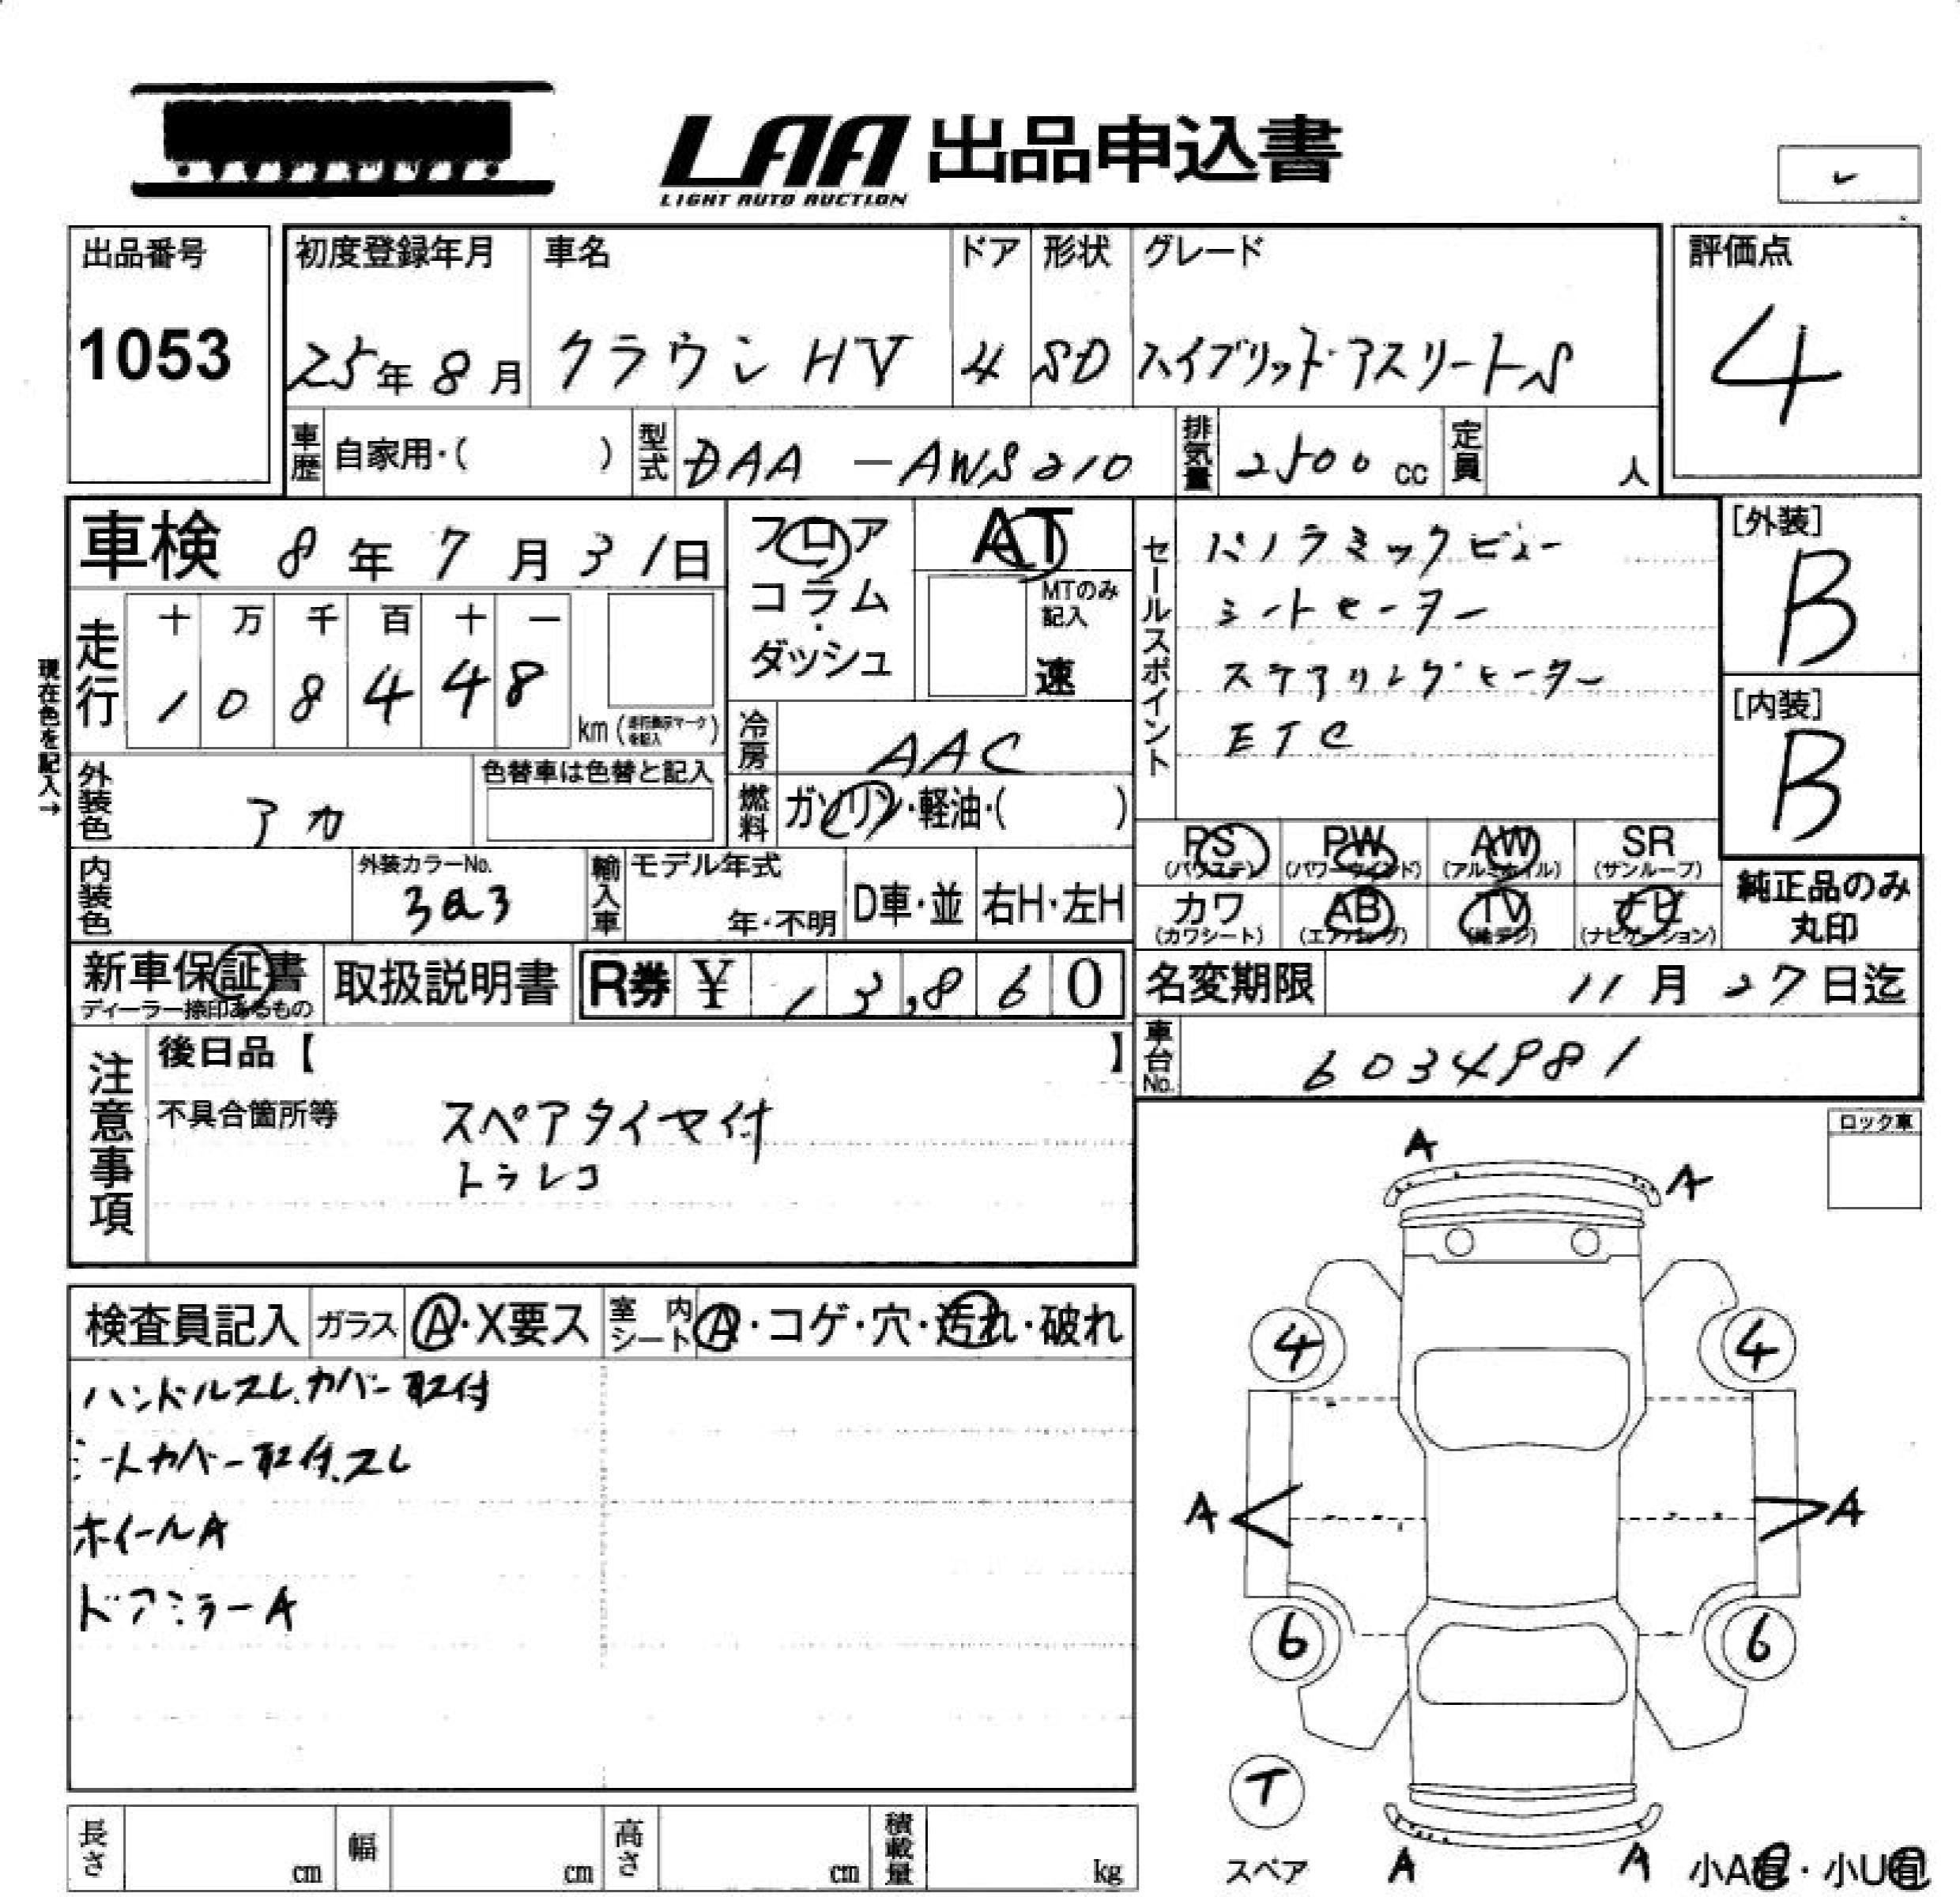 LAA 出品申込書
LIGHT AUTO AUCTION
出品番号
1053
初度登録年月 車名 ドア 形状 グレード
25年8月 クラウンHV 4 SD ハイブリッドアスリートS
評価点
4
車歴 自家用・( ) 型式 DAA-AWS210 排気量 2500cc 定員 人
車検 8年7月31日
フロア
コラム・
ダッシュ
AT
MTのみ記入
速
セールスポイント
パノラミックビュー
シートヒーター
ステアリングヒーター
ETC
[外装]
B
[内装]
B
現在色を記入→
走行 十 万 千 百 十 一
1 0 8 4 4 8
km
冷房 AAC
外装色 アカ 色替車は色替と記入
燃料 ガソリン・軽油・( )
PS (パワステ) PW (パワーウィンド) AW (アルミホイル) SR (サンルーフ)
カワ (カワシート) AB (エアバッグ) TV (地デジ) ナビ (ナビゲーション)
純正品のみ丸印
内装色 外装カラーNo. 3Q3 輸入車 モデル年式 年・不明 D車・並 右H・左H
新車保証書 取扱説明書 R券 ¥ 13,860
ディーラー捺印あるもの
名変期限 11月27日迄
車台No. 6034981
注意事項
後日品【 】
不具合箇所等 スペアタイヤ付
ドラレコ
ロック車
検査員記入 ガラス A・X要ス 室内シート A・コゲ・穴・汚れ・破れ
ハンドルスレ、カバー取付
シートカバー取付、スレ
ホイールA
ドアミラーA
A
A
4 4
A A
6 6
T
スペア
A A
小A有・小U有
長さ cm 幅 cm 高さ cm 積載量 kg